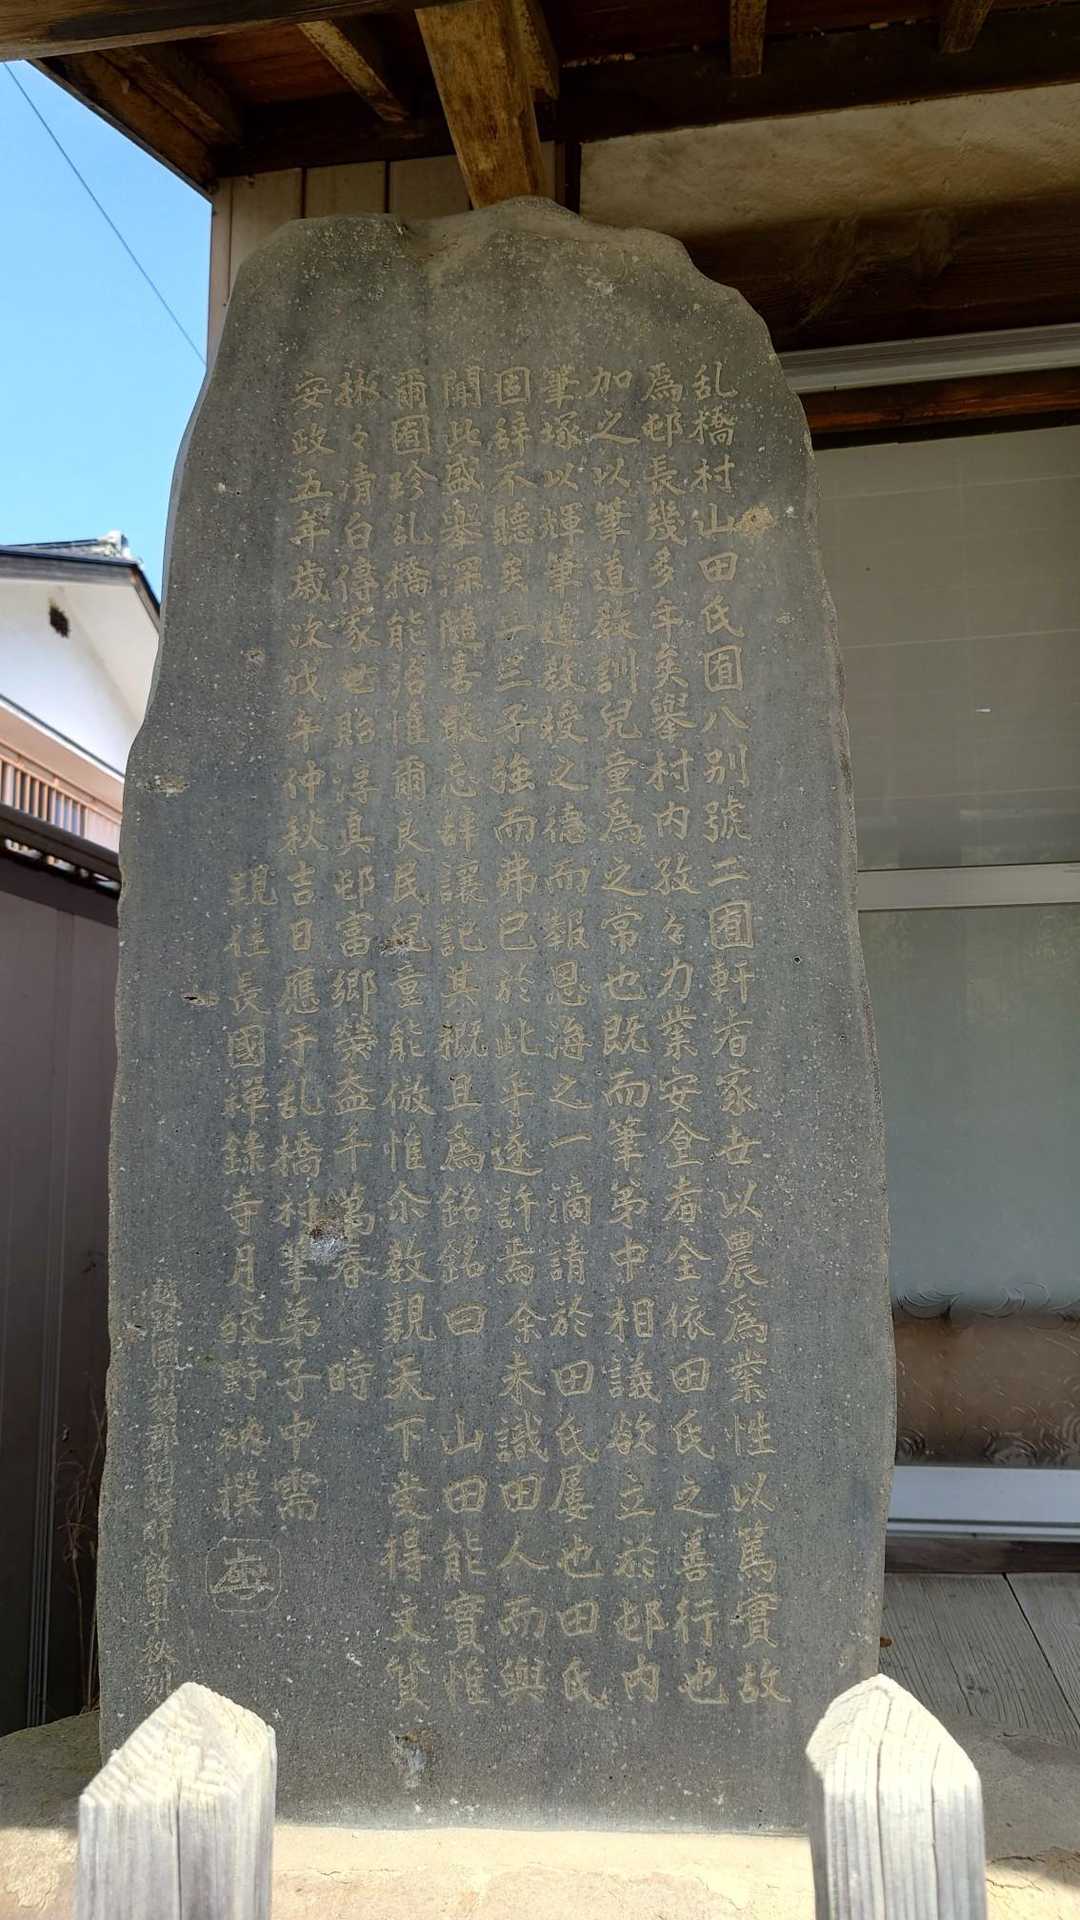 乱橋村山田氏囿八別號二囿軒者家世以農爲業性以篤實故
爲邨長幾多年矣擧村内孜々力業安全者全依田氏之善行也
加之以筆道教訓兒童爲之常也既而筆弟中相議欲立於邨内
筆塚以輝筆道教授之德而報恩海之一滴請於田氏屡也田氏
固辞不聽矣二三子強而弗已於此乎遂許焉余未識田人而與
聞此盛擧深隨喜敢忘辞讓記其概且爲銘銘曰 山田能實惟
爾囿珍乱橋能治惟爾良民兒童能倣惟尒教親天下愛得文質
彬々清白傳家世貽淳真邨富郷榮益千萬春 時
安政五年歳次戊午仲秋吉日應于乱橋村筆弟子中需
現住長國禅録寺月皎野衲撰
越後國刈羽郡 飯田千秋刻